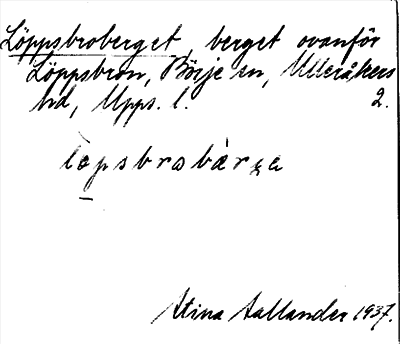 Löppsbroberget, berget ovanför
Löppsbron, Börje sn, Ulleråkers
hd, Upps. l. 2.
Stina Hallander 1937.